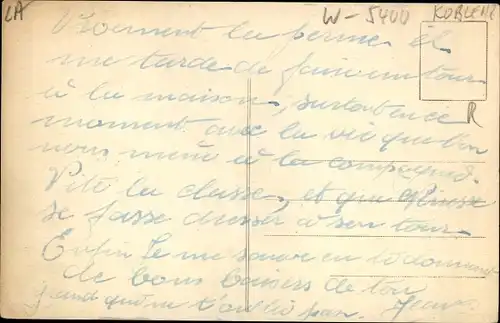 LA
W-5400
KOBLENZ
R
Vivement la perme il
me tarde de faire un tour
à la maison, surtout en ce
moment avec la vie que l'on
nous mène à la compagnie.
Vite la classe, et que
se fasse dresser à son tour
Enfin je me sauve en te donnant
de bons baisers de ton
qui ne t'oublie pas. Jean